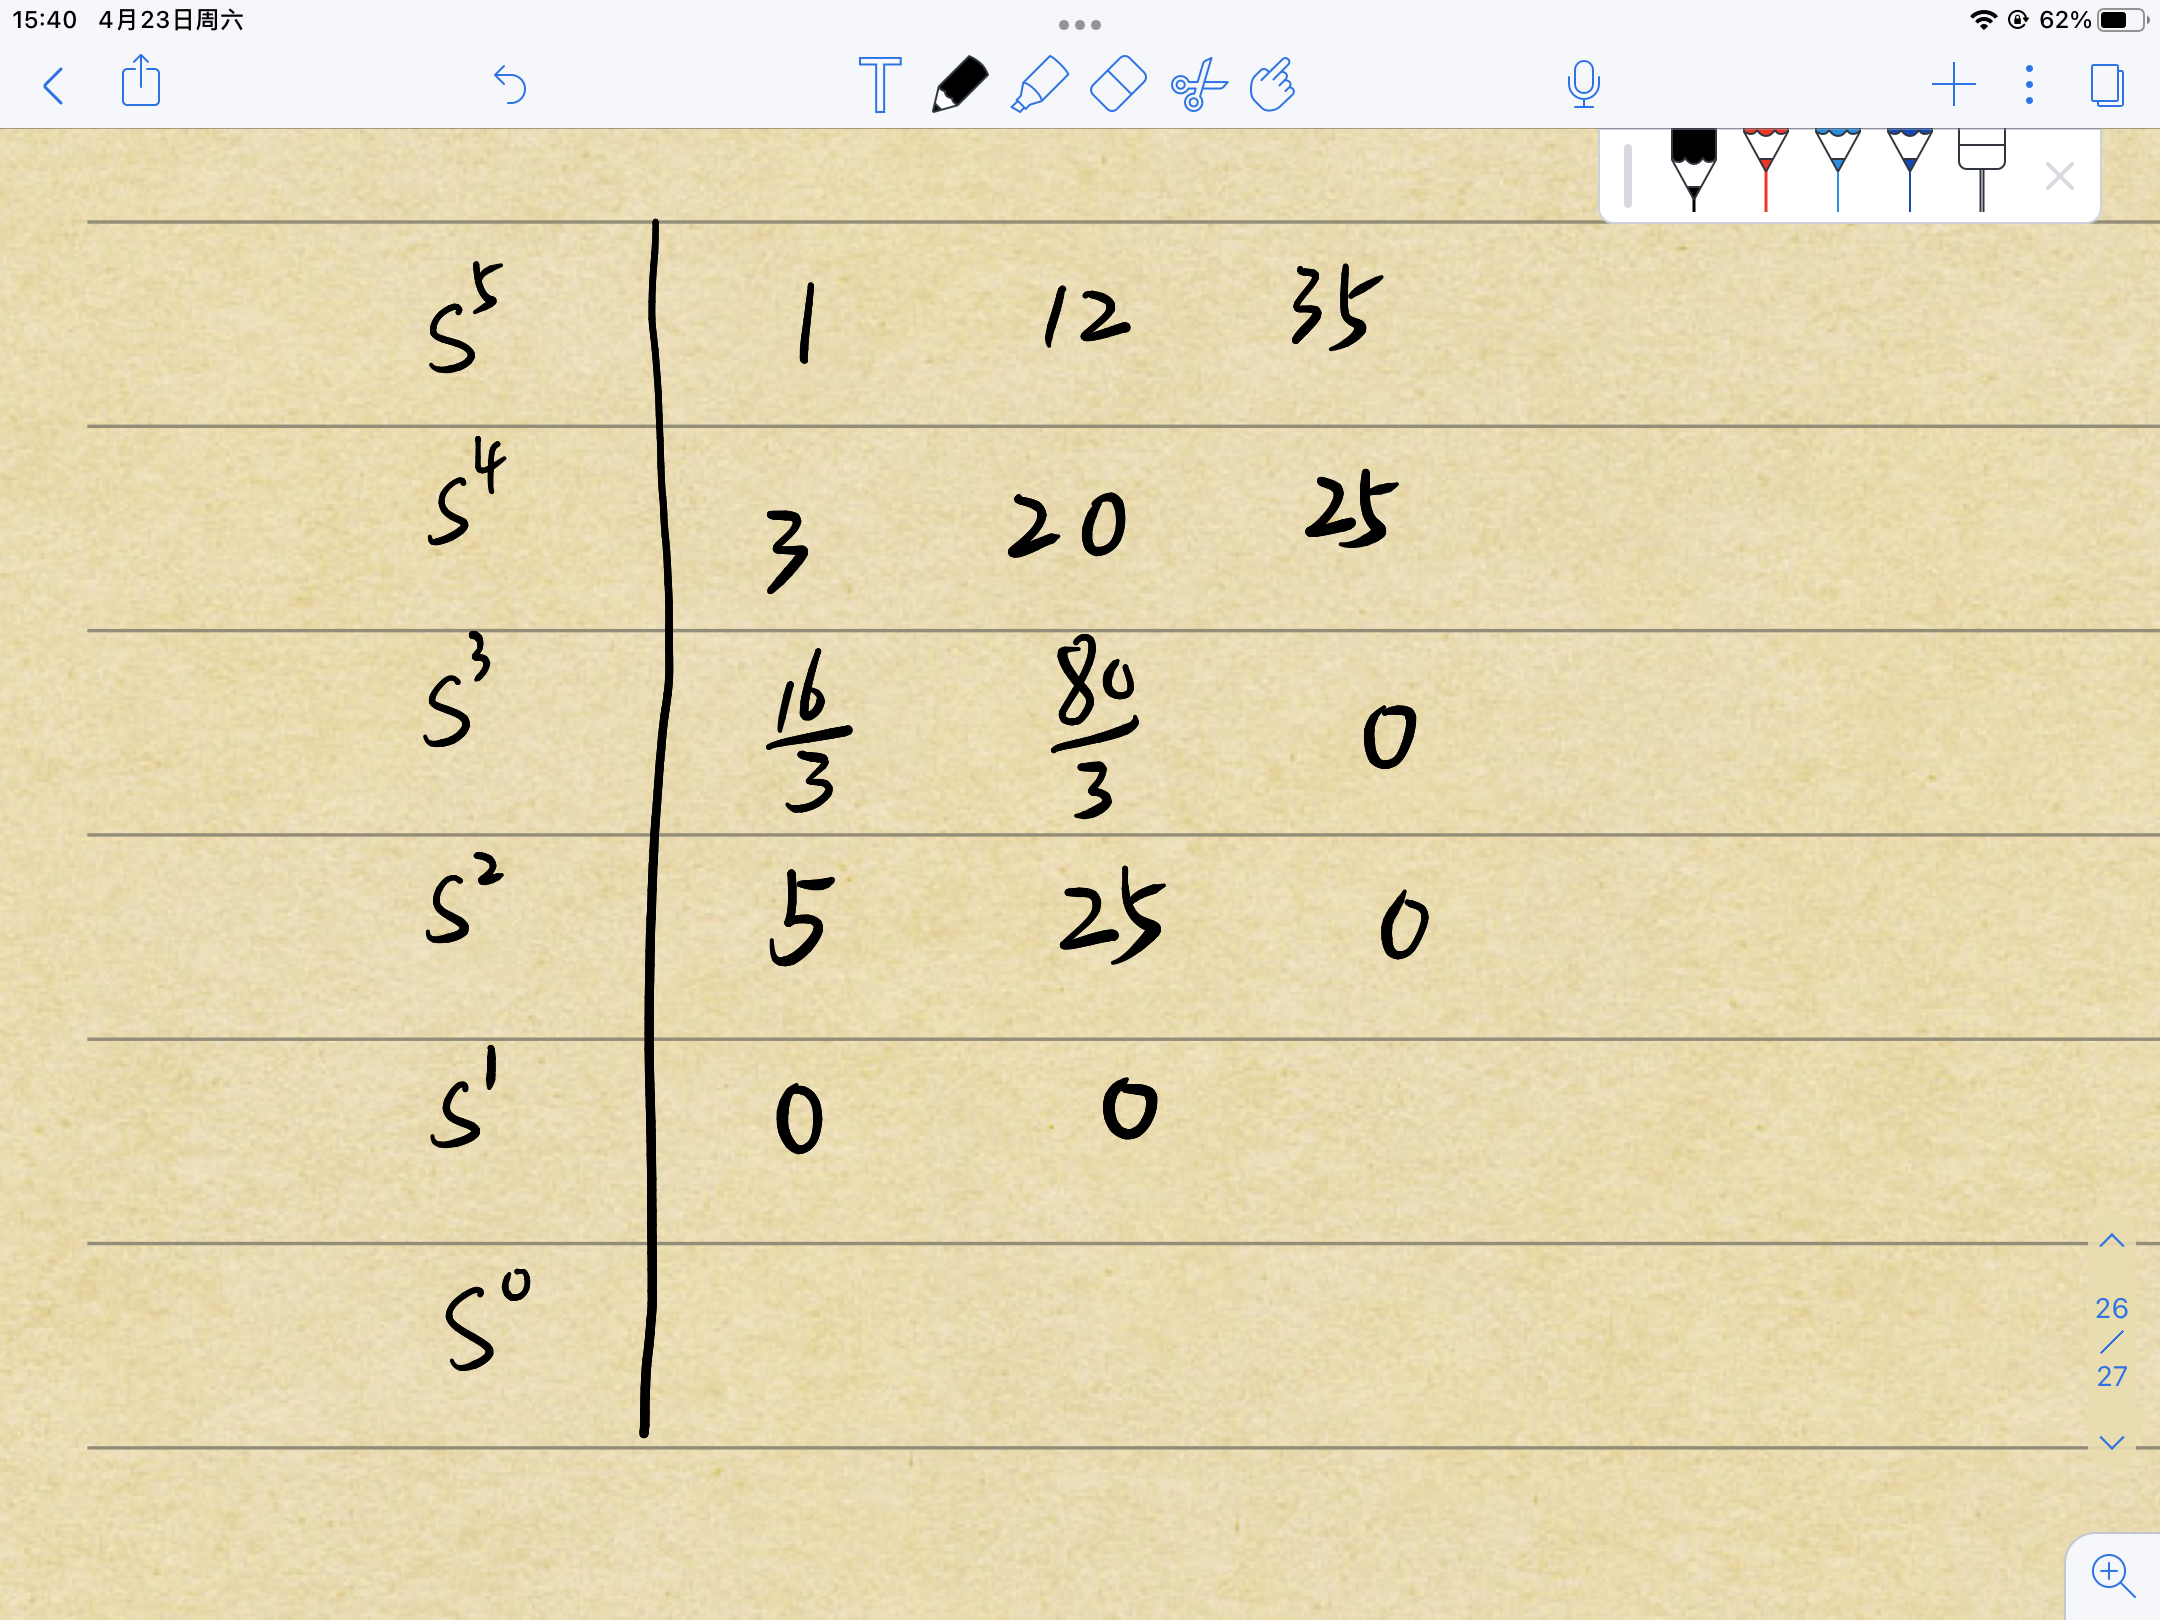 15:40 4月23日周六 62%
T
S⁵ 1 12 35
S⁴ 3 20 25
S³ 16/3 80/3 0
S² 5 25 0
S¹ 0 0
S⁰
26
/
27